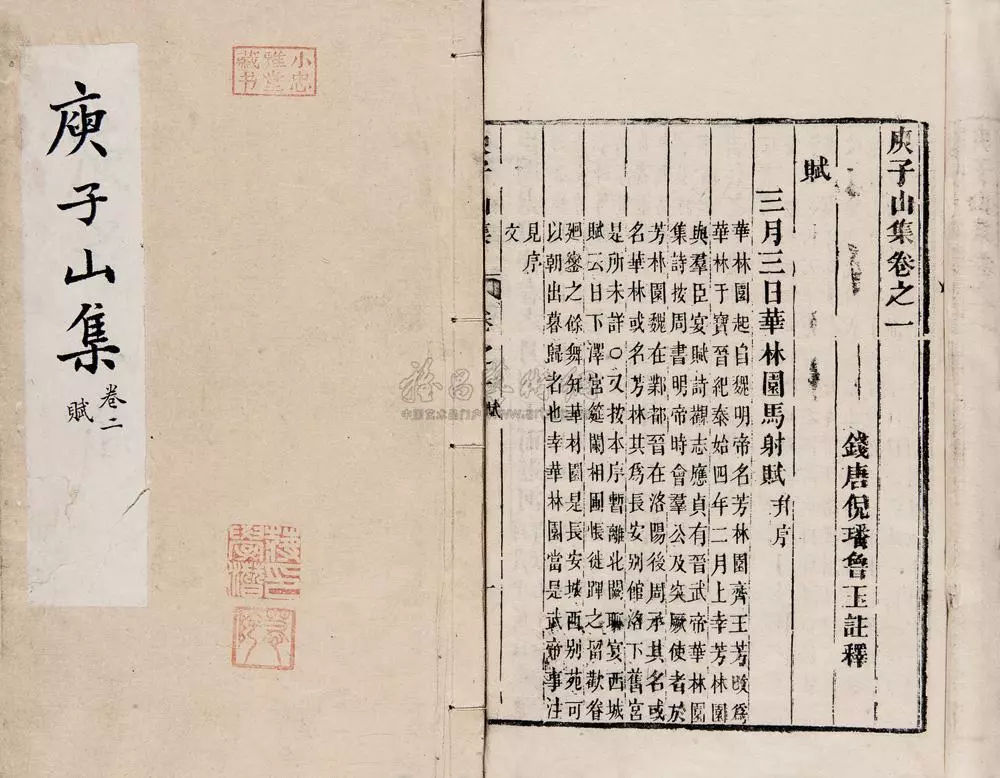 庾子山集
卷二
賦
小忠
雅堂
藏书
庾子山集卷之一
錢唐倪璠魯玉註釋
賦
三月三日華林園馬射賦 并序
華林園起自魏明帝名芳林園齊王芳改爲
華林于寶晉紀泰始四年二月上幸芳林園
與羣臣宴賦詩觀志應貞有晉武帝華林園
集詩按周書明帝時會羣公及突厥使者於
芳林園魏在鄴都晉在洛陽後周承其名或
名華林或名芳林其爲長安别館洛下舊宮
是所未詳○又按本序暫離北闕聊宴西城
賦云日下澤宮筵闌相圃悵徙蹕之留歡眷
廻鑾之餘舞知華林園是長安城西别苑可
以朝出暮歸者也幸華林園當是武帝事注
見序
文